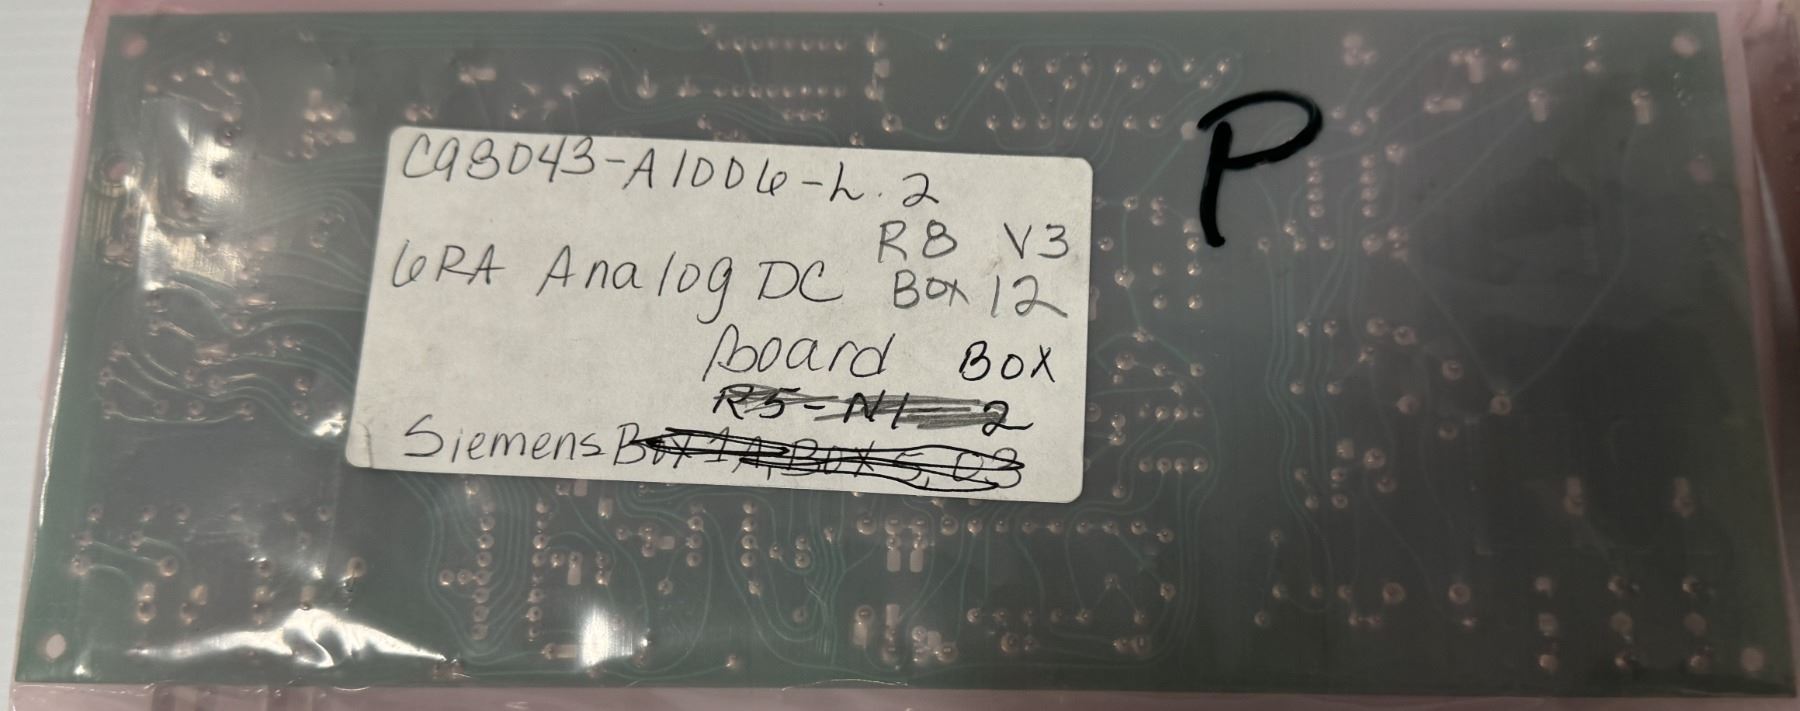 C98043-A1006-L.2
R8 V3
6RA Analog DC Box 12
Board Box
R5-N1-2
Siemens Box 1A, Box 5, C3
P